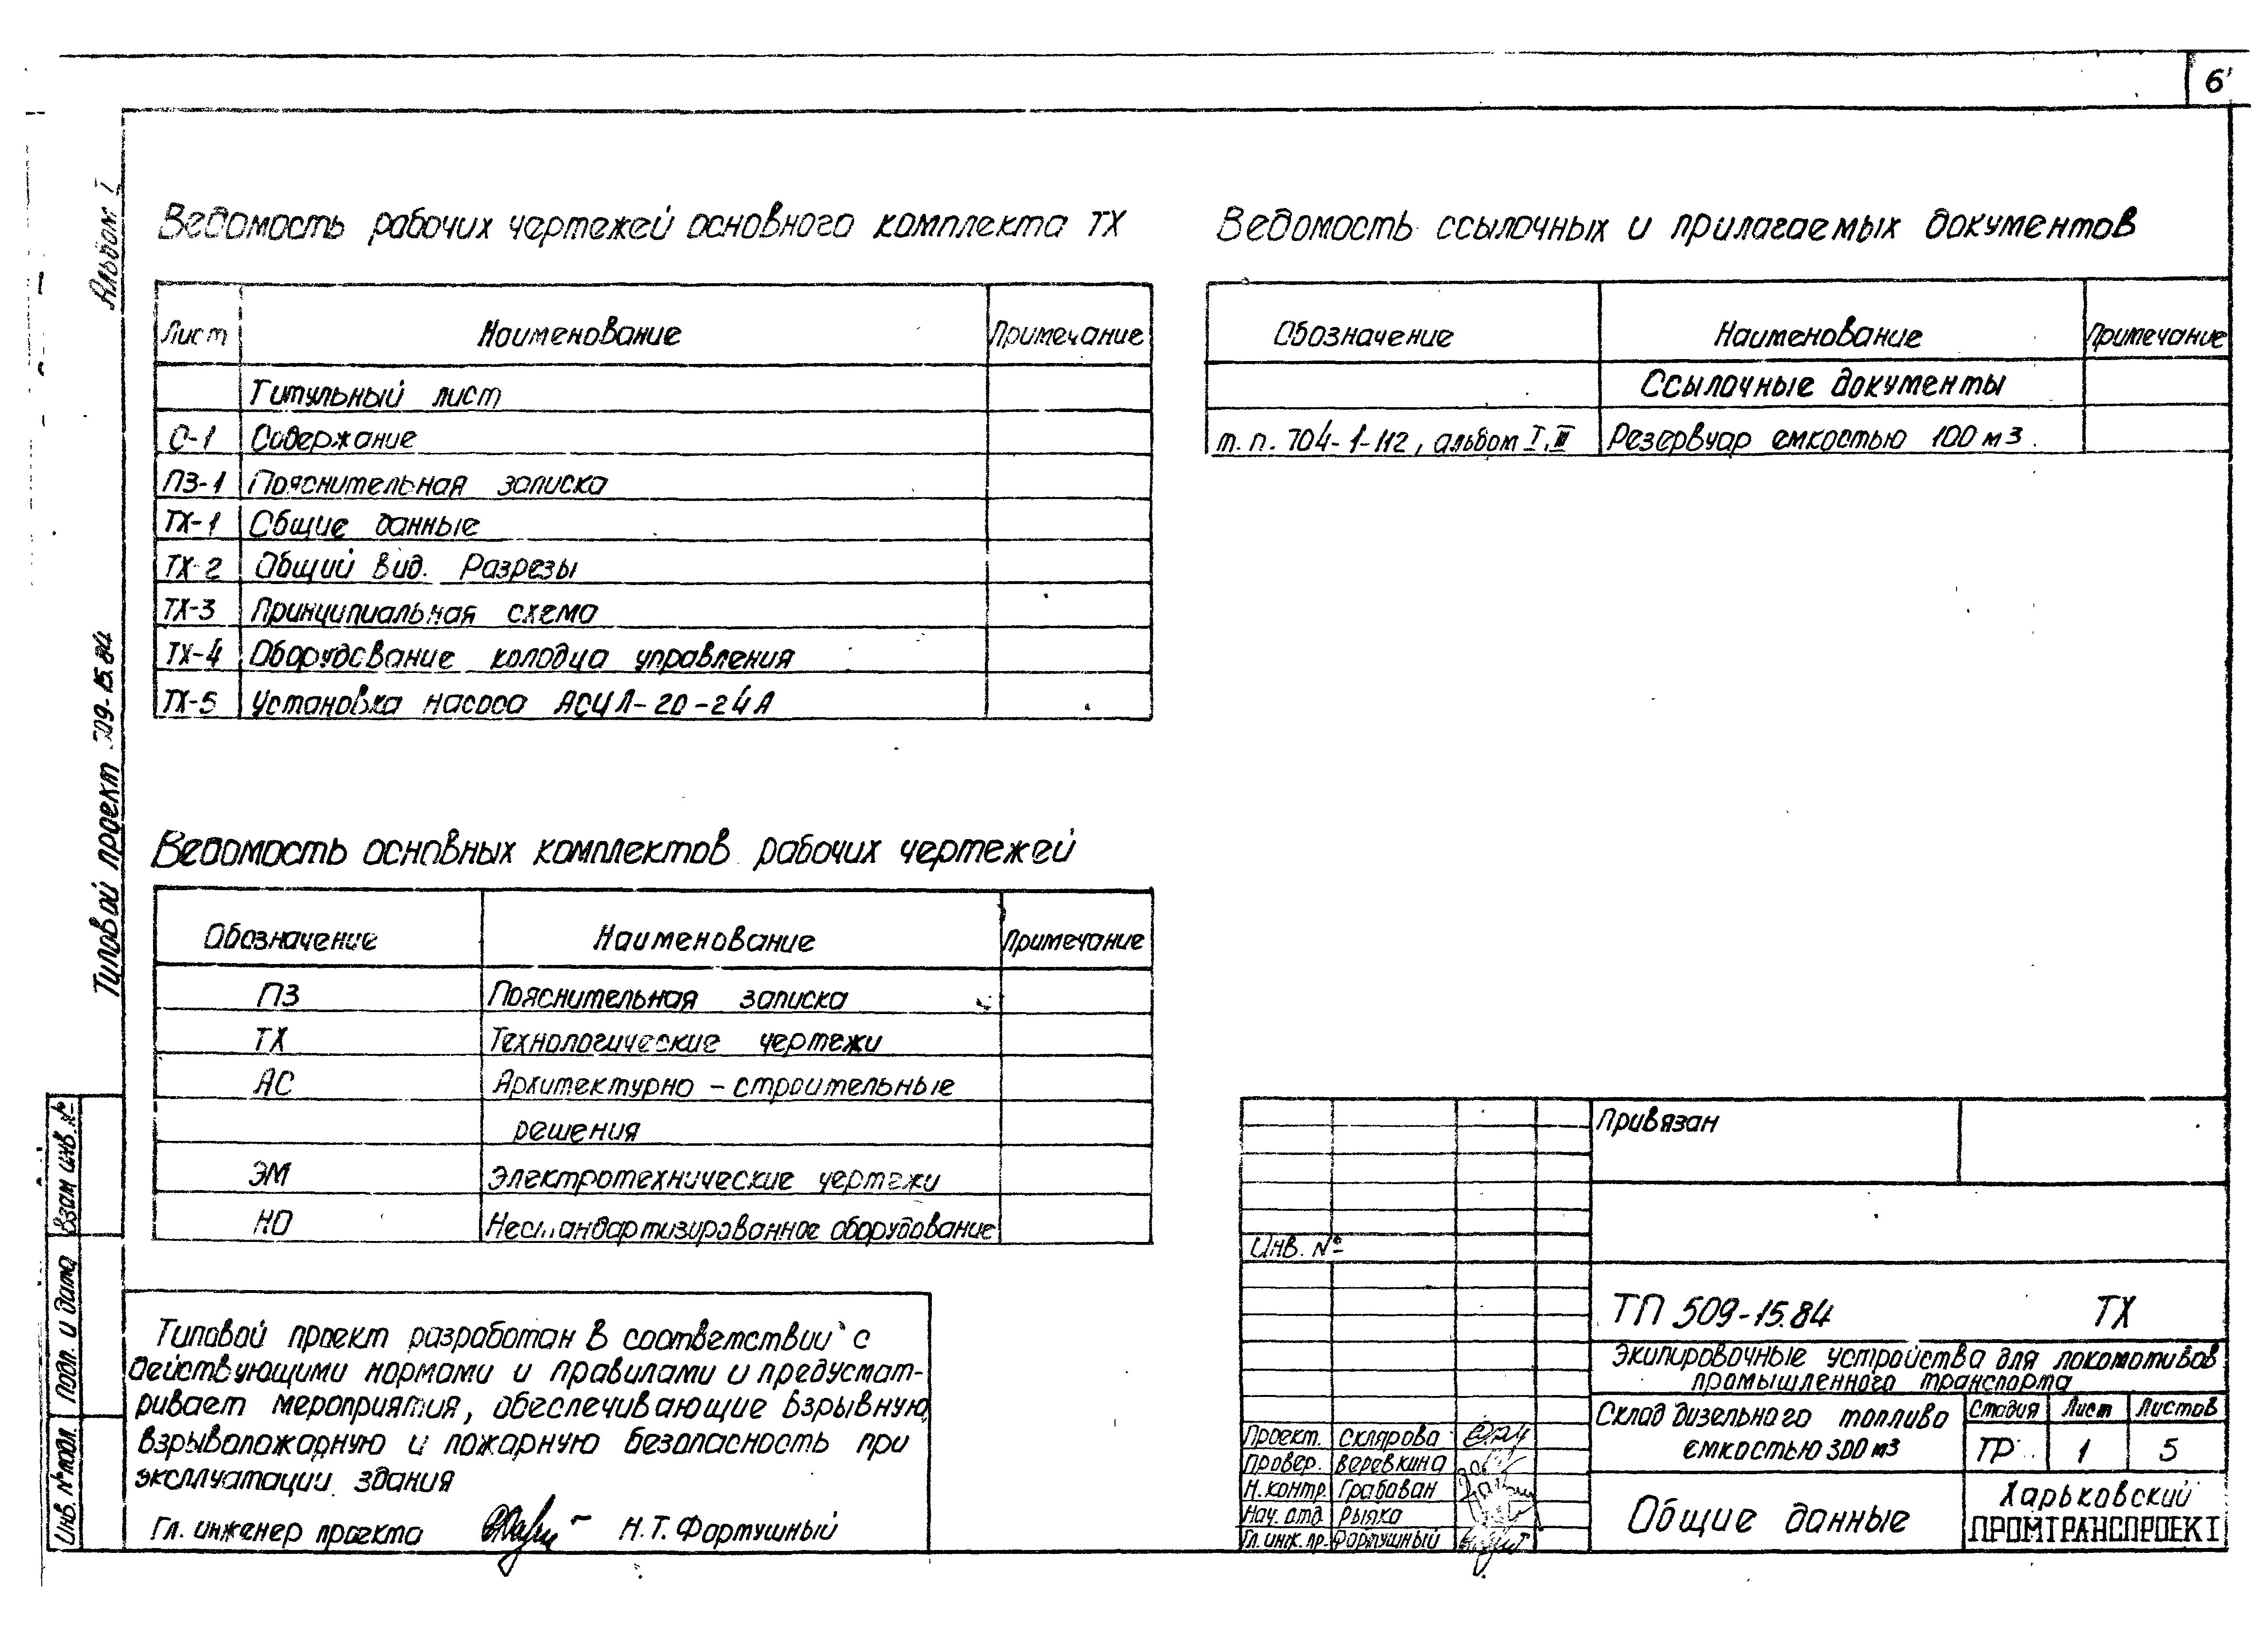 6
Альбом I
Типовой проект 509-15.84
Ведомость рабочих чертежей основного комплекта ТХ
Лист Наименование Примечание
Титульный лист
С-1 Содержание
ПЗ-1 Пояснительная записка
ТХ-1 Общие данные
ТХ-2 Общий вид. Разрезы
ТХ-3 Принципиальная схема
ТХ-4 Оборудование колодца управления
ТХ-5 Установка насоса АСЦЛ-20-24А
Ведомость ссылочных и прилагаемых документов
Обозначение Наименование Примечание
Ссылочные документы
т.п. 704-1-112, альбом I, III Резервуар емкостью 100 м3.
Ведомость основных комплектов рабочих чертежей
Обозначение Наименование Примечание
ПЗ Пояснительная записка
ТХ Технологические чертежи
АС Архитектурно-строительные
решения
ЭМ Электротехнические чертежи
НО Нестандартизированное оборудование
Типовой проект разработан в соответствии с
действующими нормами и правилами и предусмат-
ривает мероприятия, обеспечивающие взрывную,
взрывопожарную и пожарную безопасность при
эксплуатации здания
Гл. инженер проекта Н.Т. Фортушный
Взам инв. №
Подп. и дата
Инв. № подл.
Привязан
Инв. №
ТП 509-15.84 ТХ
Экипировочные устройства для локомотивов
промышленного транспорта
Склад дизельного топлива
емкостью 300 м3
Стадия Лист Листов
ТР 1 5
Проект. Склярова
Провер. Веревкина
Н.контр. Грабован
Нач. отд. Рыяка
Гл. инж. пр. Фортушный
Общие данные
Харьковский
ПРОМТРАНСПРОЕКТ